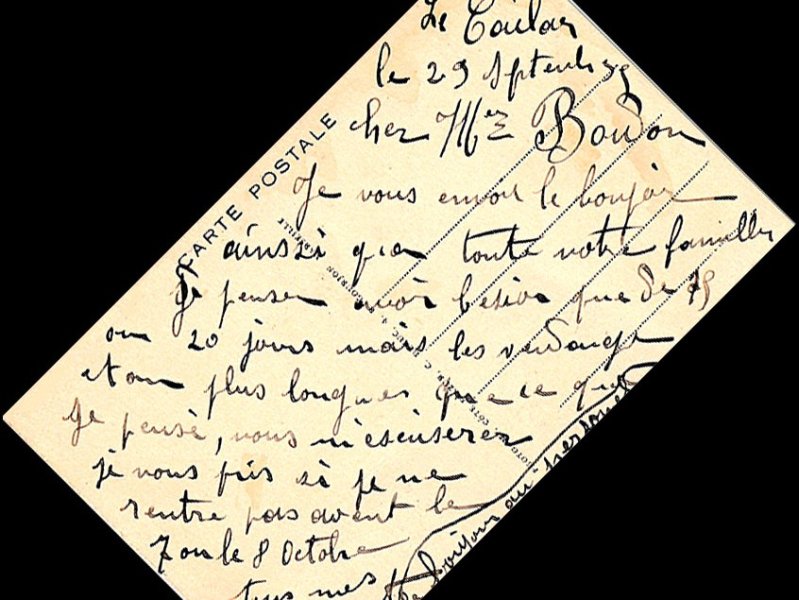 Le Cailar
le 29 septembre
cher Mer Boudon
Je vous envoi le bonjour
ainssi que toute votre famille
Je penser avoir besion que de 15
ou 20 jours mais les vendange
etan plus longues que ce que
je pensé, vous m'escuserer
je vous pris si je ne
rentre pas avent le
7 ou le 8 Octobre
tous mes
CARTE POSTALE